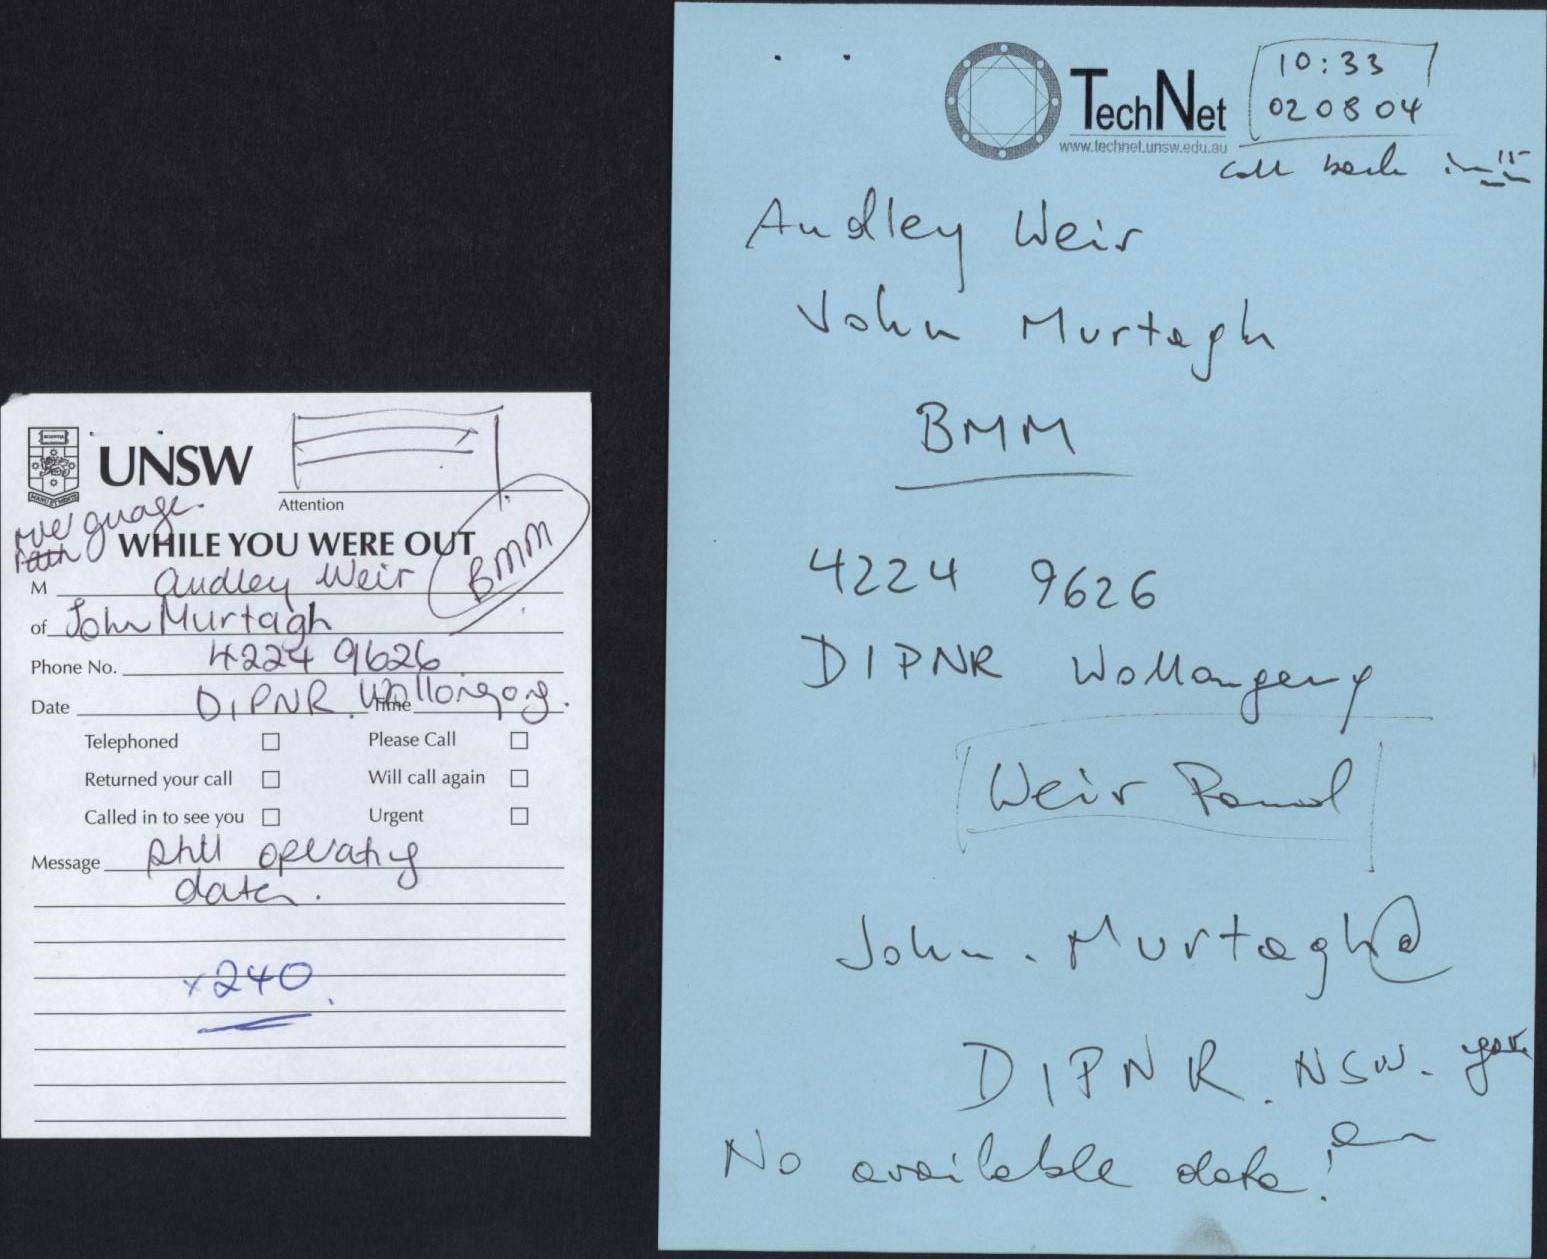 UNSW
Attention
guage.
WHILE YOU WERE OUT
BMM
M Audley Weir
of John Murtagh
Phone No. 4224 9626
Date DIPNR Wollongong. Time
Telephoned Please Call
Returned your call Will call again
Called in to see you Urgent
Message still operating
data.
x240
TechNet
www.technet.unsw.edu.au
10:33
020804
call back in 15
Audley Weir
John Murtagh
BMM
4224 9626
DIPNR Wollongong
Weir Pond
John.Murtagh@
DIPNR.NSW.gov.
au
No available data!